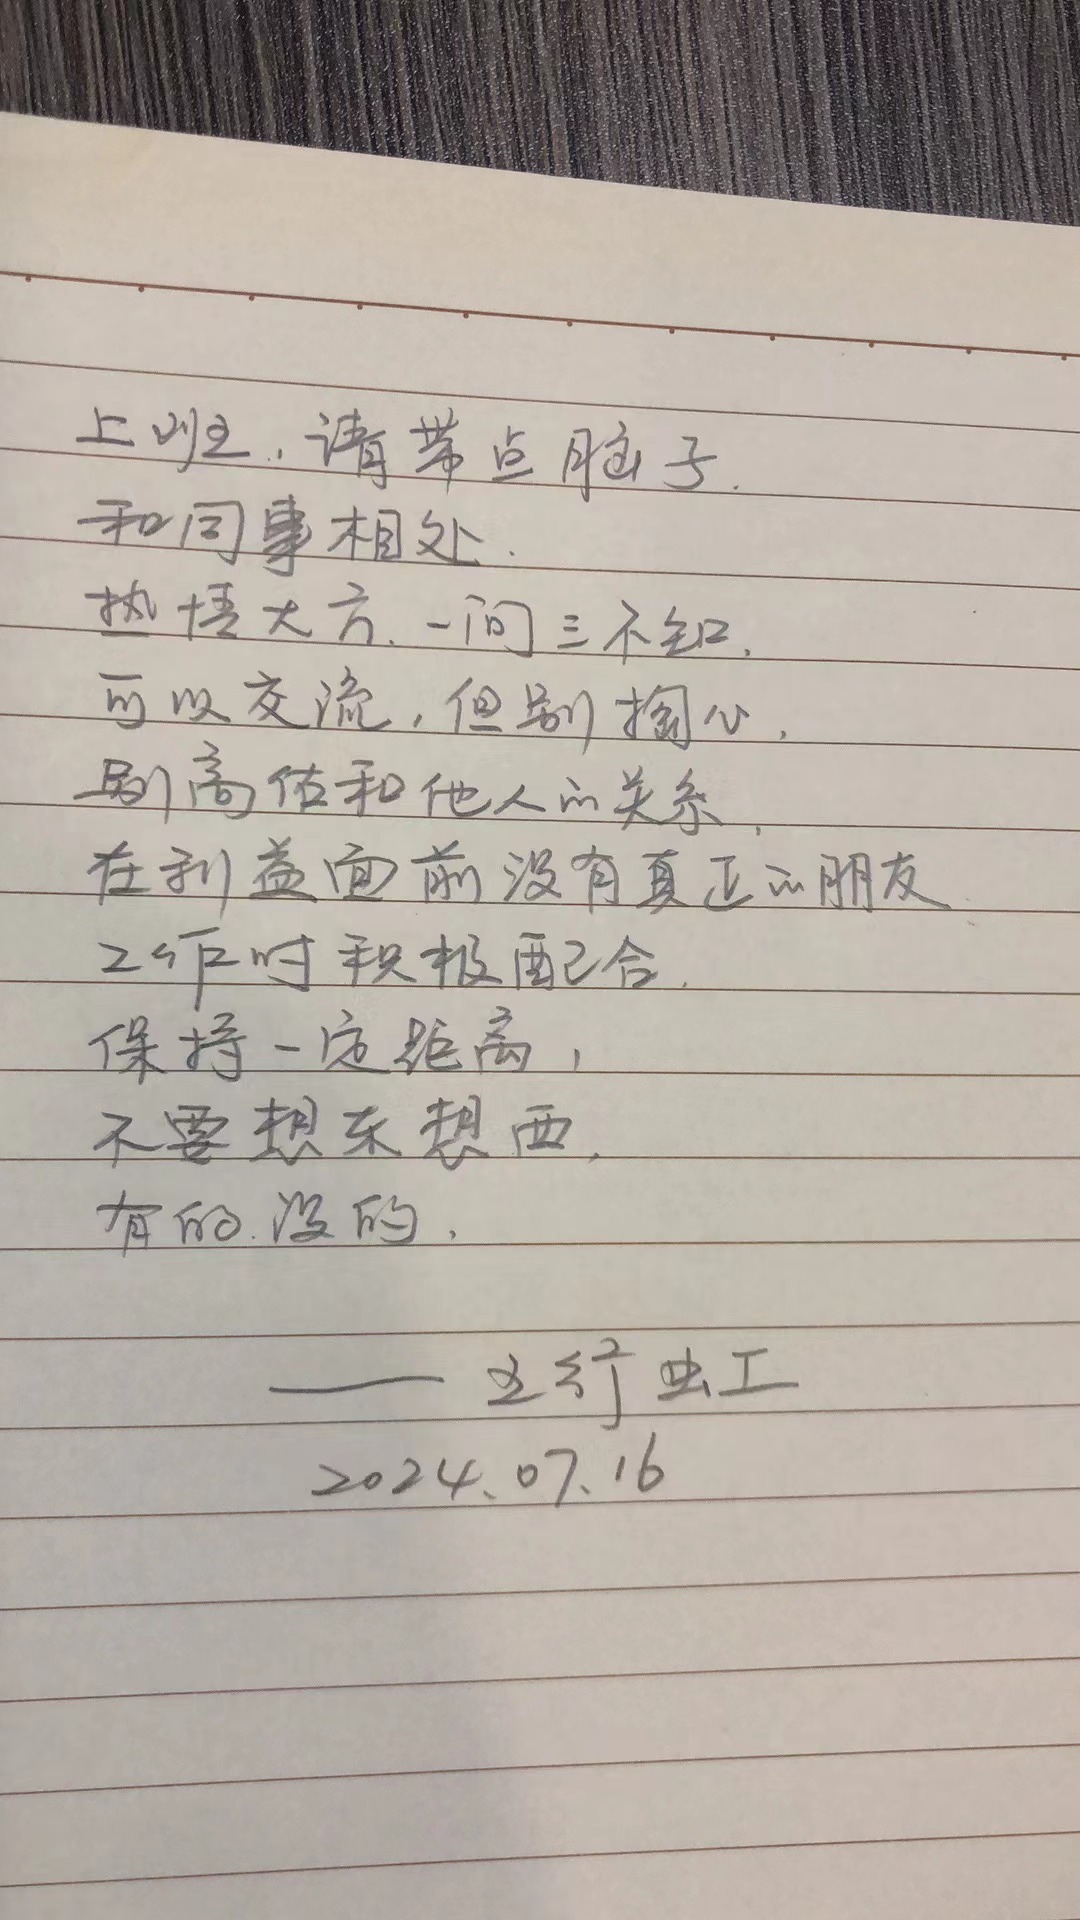 上班，请带点脑子.
和同事相处.
热情大方、一问三不知.
可以交流，但别掏心，
别高估和他人的关系，
在利益面前没有真正的朋友
工作时积极配合.
保持一定距离，
不要想东想西，
有的.没的.
—— 五行虫工
2024.07.16